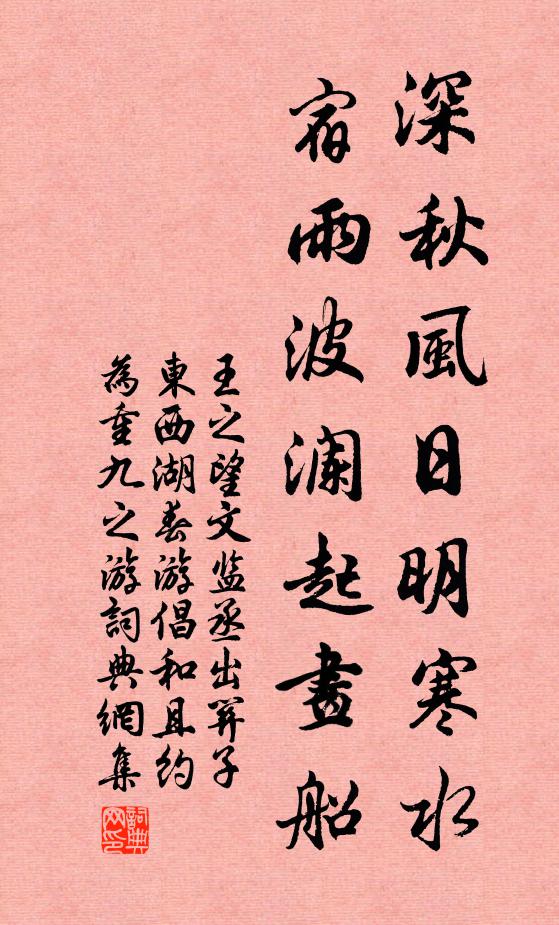 深秋風日明寒水
宿雨波瀾起畫船
王之望文监丞出笄子
東西湖春游倡和且约
為重九之游詞典網集
詞典网印